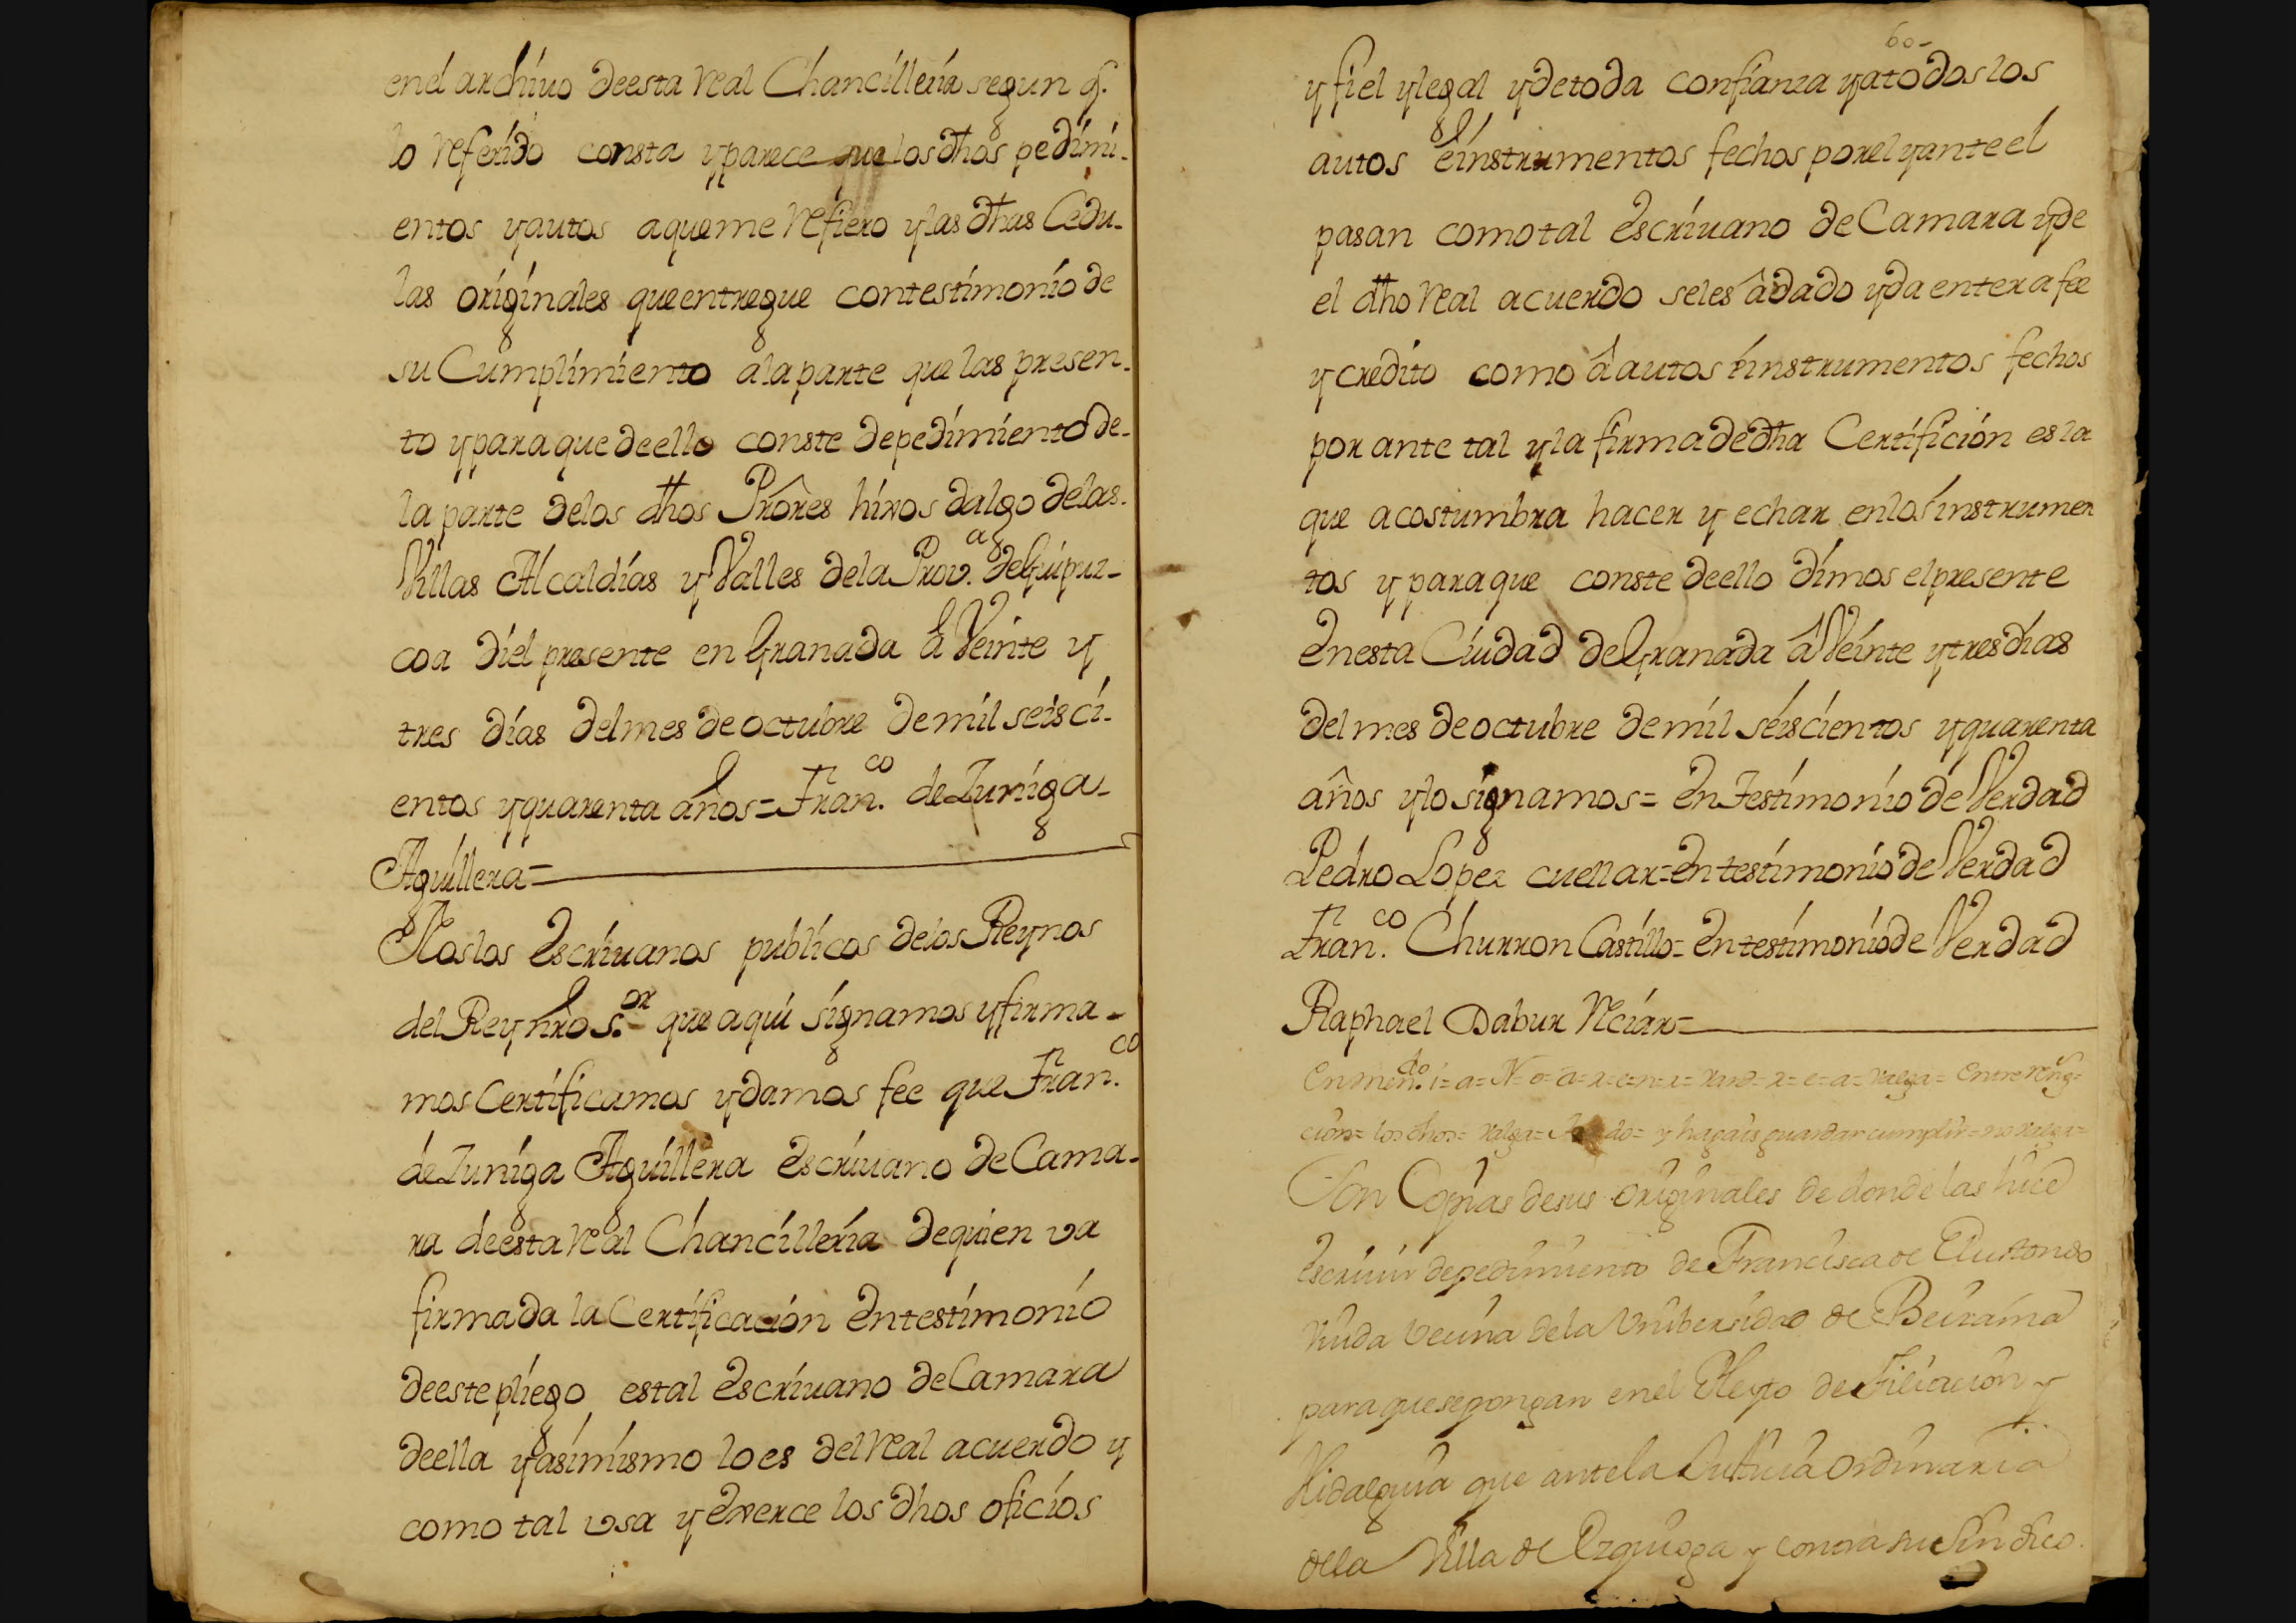 en el archiuo de esta Real Chancilleria segun q.
lo referido consta y parece que los dhos pedimi-
entos y autos a que me refiero y las dhas Cedu-
las originales que entregue con testimonio de
su Cumplimiento a la parte que las presen-
to y para que de ello conste de pedimiento de-
la parte de los dhos Prores hixos dalgo de las.
Villas Alcaldias y Valles de la Prov.ª de Guipuz-
coa di el presente en Granada à Veinte y
tres dias del mes de octubre de mil seis ci-
entos y quarenta años = Fran.co de Zuniga-
Aguillera =
Nos los Escriuanos publicos de los Reynos
del Rey nro S.or que aqui signamos y firma-
mos Certificamos y damos fee que Fran.co
de Zuniga Aguillera Escriuano de Cama-
ra de esta Real Chancilleria de quien va
firmada la Certificacion En testimonio
de este pliego es tal Escriuano de Camara
de ella y asimismo lo es del Real acuerdo y
como tal vsa y Exerce los dhos oficios
60-
y fiel y legal y de toda confianza y a todos los
autos e instrumentos fechos por el y ante el
pasan como tal Escriuano de Camara y de
el dho Real acuerdo se les â dado y da entera fee
y credito como â autos è instrumentos fechos
por ante tal y la firma de dha Certificion es la
que acostumbra hacer y echar en los instrumen
tos y para que conste de ello dimos el presente
En esta Ciudad de Granada â Veinte y tres dias
del mes de octubre de mil seiscientos y quarenta
años y lo signamos = En Testimonio de Verdad
Pedro Lopez cuellar = En testimonio de Verdad
Fran.co Churron Castillo = En testimonio de Verdad
Raphael Dabur
Enmen.do i = a = N = o = a = x = e = n = = x = e = a = valga = Entre reng=
cion = los dhos = valga = do = y hagais guardar cumplir = no valga =
Son Copias de sus originales de donde las hice
escriuir de pedimiento de Francisca de Elustondo
Viuda Vecina de la Vniversidad de Beizama
para que se pongan en el Pleyto de Filiacion y
Hidalguia que ante la Justicia ordinaria
de la Villa de Ezquioga y contra su Sindico.